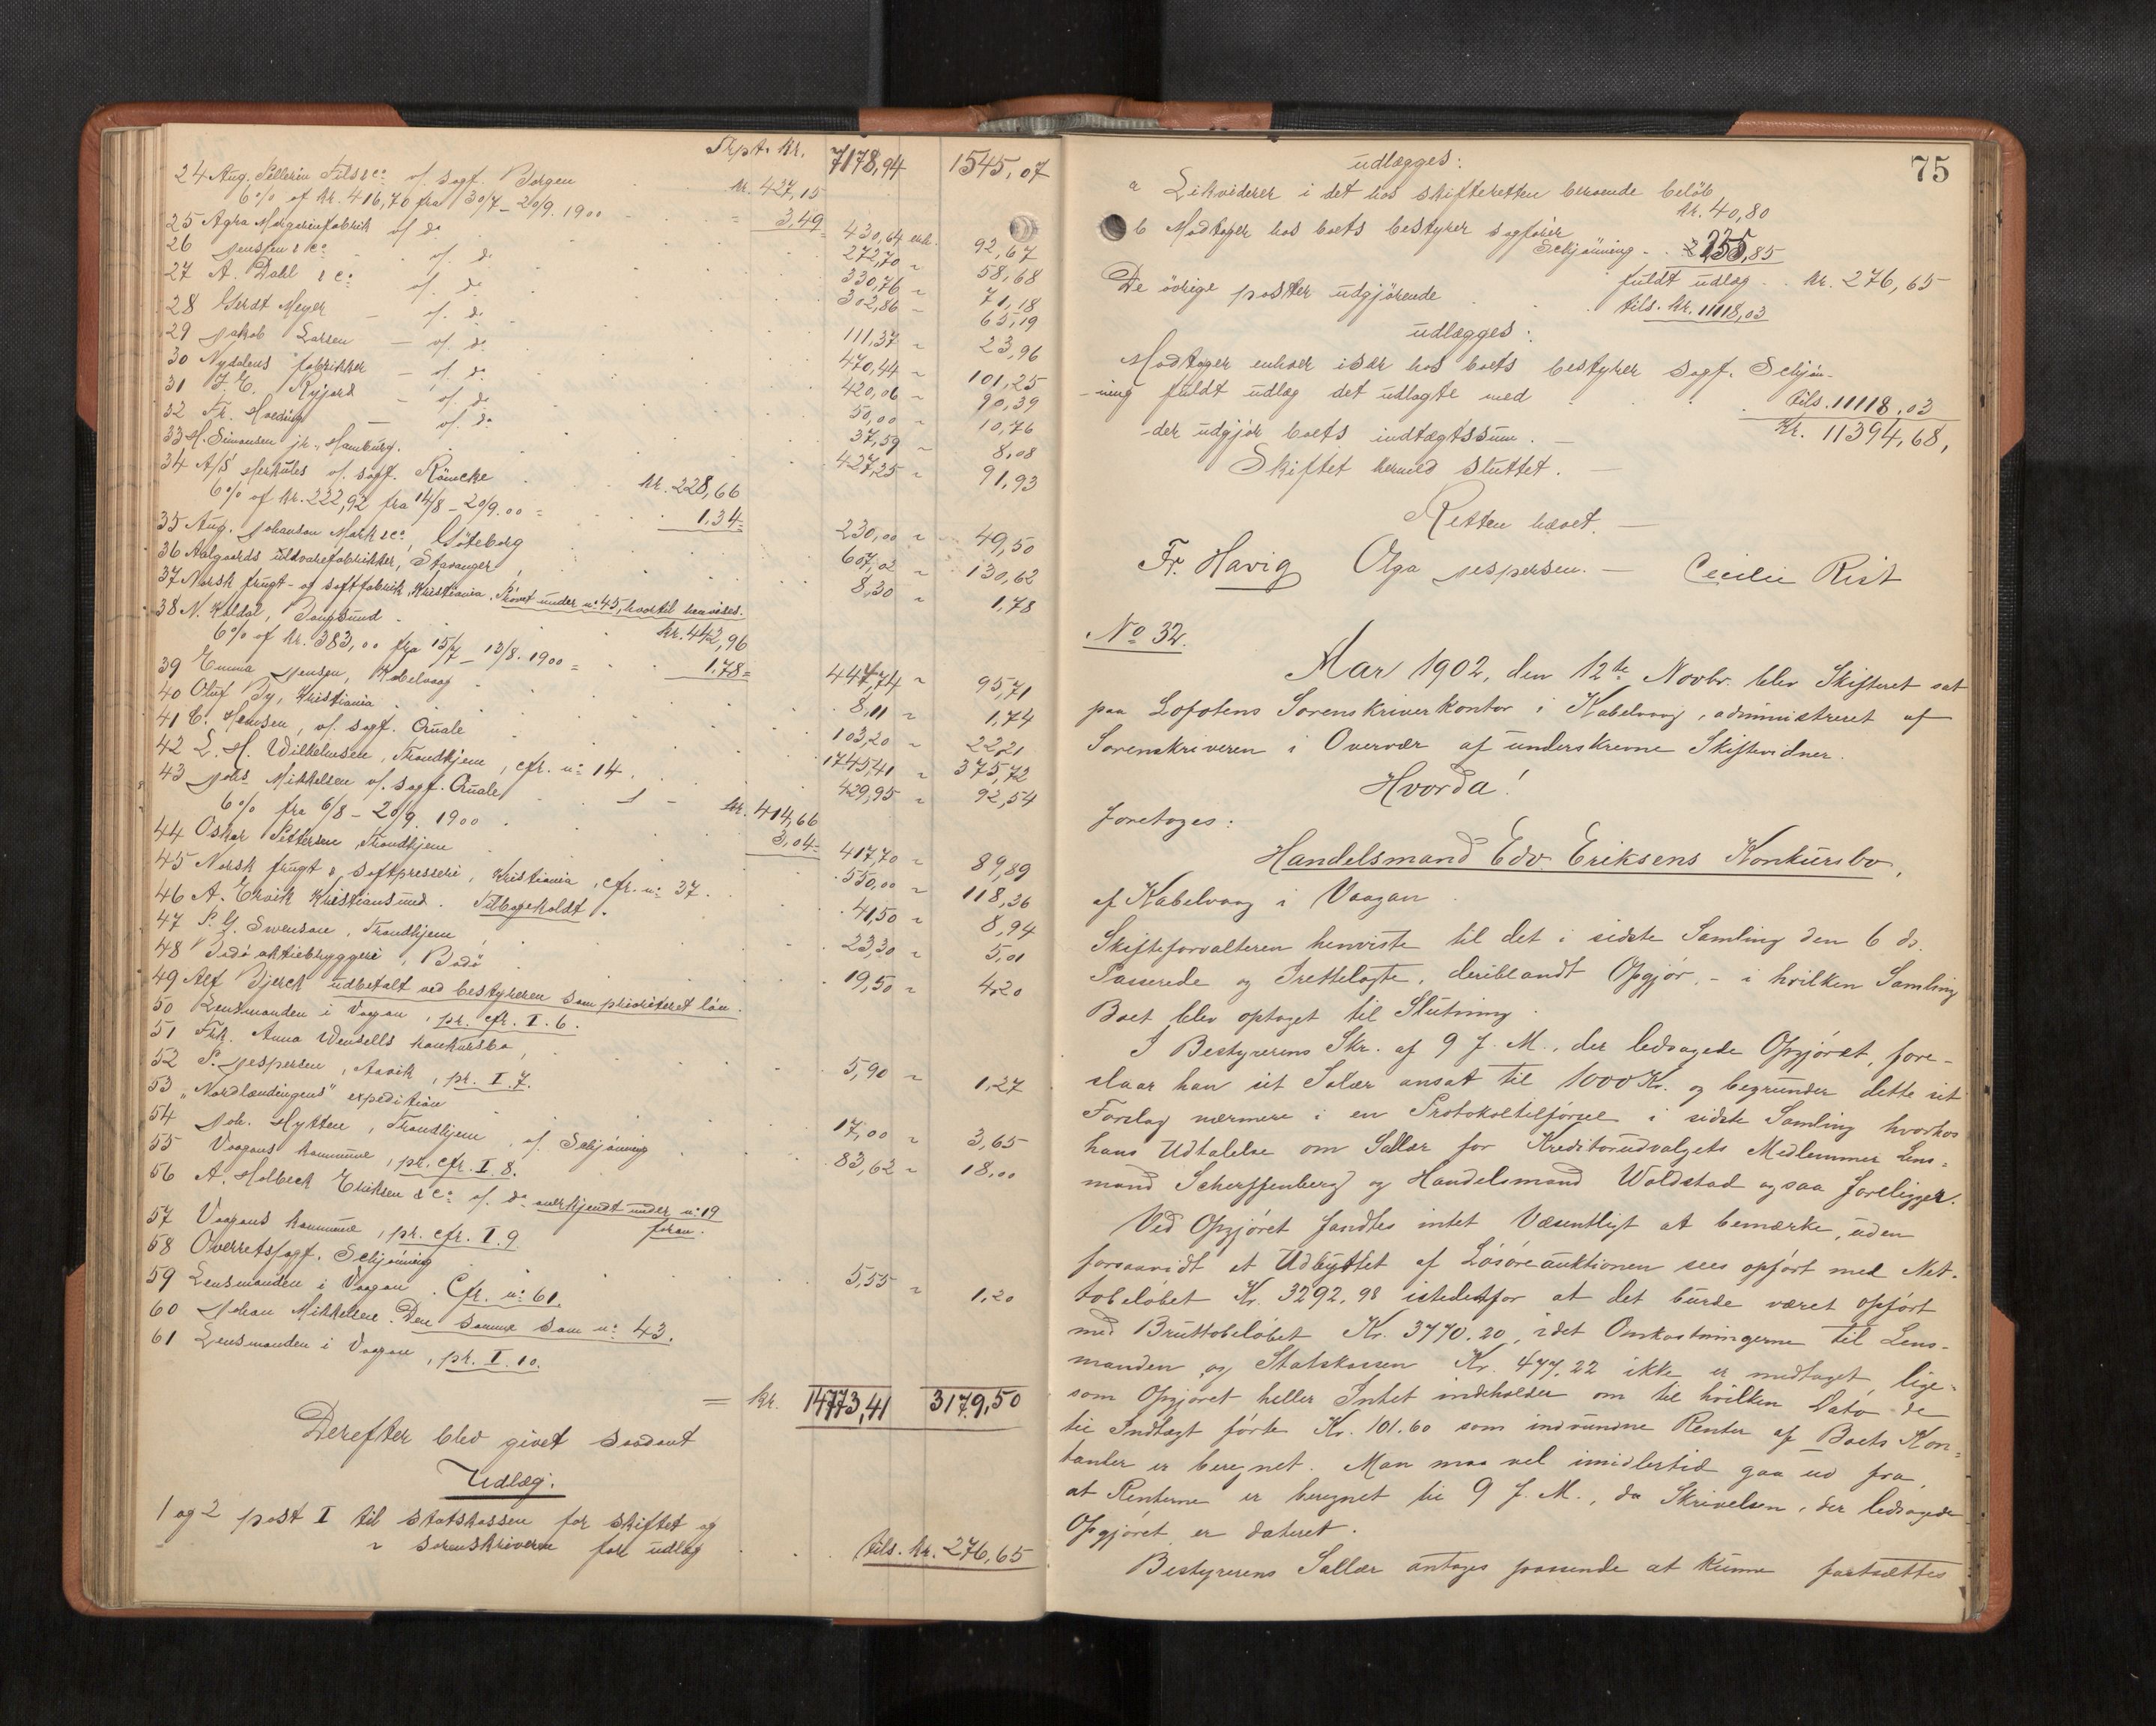 Trpt. Kr. 7178,94 1545,07
24 Aug. Pellerin Fils & Co v. sagf. Borgen kr. 427,15
6% af kr. 416,76 fra 30/7 – 20/9. 1900 = 3,49 430,64 enk. 92,67
25 Agra Margarinfabrik v. do 272,70 " 58,68
26 Jenssen & Co v. do 330,76 " 71,18
27 A. Dahl & Co v. do 302,86 " 65,19
28 Gerdt Meyer – v. do 111,37 " 23,96
29 Jakob Larsen – v. do 470,44 " 101,25
30 Nydalens fabrikker – v. do 420,06 " 90,39
31 J. E. Ryjord – v. do 50,00 " 10,76
32 Fr. Hoeding v. do 37,59 " 8,08
33 M. Simonsen jr., Hamburg. 427,25 " 91,93
34 A/S Herkules v. sagf. Röncke kr. 228,66
6% af kr. 222,92 fra 14/8 – 20/9. 00 = 1,34 = 230,00 " 49,50
35 Aug. Johanson Mark & Co, Göteborg 607,02 " 130,62
36 Aalgaards uldvarefabrikker, Stavanger 8,30 " 1,78
37 Norsk frugt- og saftfabrik, Kristiania. Prövet under no 45, hvortil henvises.
38 N. Koldal, Tangsund kr. 442,96
6% af kr. 383,00 fra 15/7 – 13/8. 1900 = 1,78 = 447,74 " 95,71
39 Emma Jensen, Kabelvaag 8,11 " 1,74
40 Oluf By, Kristiania 103,20 " 22,21
41 C. Hansen, v. sagf. Quale 1745,41 " 375,72
42 L. H. Wilhelmsen, Trondhjem, cfr. no 14. 429,95 " 92,54
43 Johs Mikkelsen v. sagf. Quale kr. 414,66
6% fra 6/8 – 20/9. 1900 3,04 = 417,70 " 89,89
44 Oskar Pettersen, Trondhjem 550,00 " 118,36
45 Norsk frugt & saftpresseri, Kristiania, cfr. no 37. 41,50 " 8,94
46 A. Ervik Kristiansund. Tilbageholdt.
47 P. G. Svenson, Trondhjem 23,30 " 5,01
48 Bodö aktiebryggeri, Bodö 19,50 " 4,20
49 Alf Bjerck udbetalt ved bestyreren som prioriteret lön.
50 Lensmanden i Vaagan, pr. cfr. I. 6.
51 Frk. Anna Wensells konkursbo, 5,90 " 1,27
52 P. Jespersen, Aavik, pr. I. 7.
53 "Nordlændingens" expedition 17,00 " 3,65
54 Joh. Hytten, Trondhjem, v. Schjönning 83,62 " 18,00
55 Vaagans kommune, pr. cfr. I. 8.
56 A. Holbeck Eriksen & Co v. do anerkjendt under no 19 foran.
57 Vaagans kommune, pr. cfr. I. 9
58 Overretssagf. Schjönning 5,55 " 1,20
59 Lensmanden i Vaagan. Cfr. no 61.
60 Johan Mikkelsen. Den samme som no 43.
61 Lensmanden i Vaagan, pr. I. 10.
= kr. 14773,41 3179,50
Derefter blev givet saadant
Udlæg:
1 og 2 post I til statskassen for skiftet og
" sorenskriveren for udlæg tils. kr. 276,65
75
udlægges:
a Likviderer i det hos skifteretten beroende belöb
kr. 40,80
b Modtager hos boets bestyrer sagförer
Schjönning - 235,85
fuldt udlæg kr. 276,65
De övrige poster udgjörende tils. kr. 11118,03
udlægges:
Modtager enhver især hos boets bestyrer sagf. Schjön-
-ning fuldt udlæg det udlagte med tils. 11118,03
-der udgjör boets indtægtssum. – Kr. 11394,68,
Skiftet hermed sluttet. –
Retten hævet. –
Fr. Havig Olga Jespersen. – Cecilie Rist
No 32.
Aar 1902, den 12te Novbr. blev Skifteret sat
paa Lofotens Sorenskriverkontor i Kabelvaag, administreret af
Sorenskriveren i Overvær af underskrevne Skiftevidner.
Hvorda!
foretoges:
Handelsmand Edv. Eriksens Konkursbo,
af Kabelvaag i Vaagan.
Skifteforvalteren henviste til det i sidste Samling den 6 ds.
Passerede og Irettelagte, deriblandt Opgjör, – i hvilken Samling
Boet blev optaget til Slutning.
I Bestyrerens Skr. af 9 f. M., der ledsagede Opgjöret, fore-
slaar han sit Salær ansat til 1000 Kr. og begrunder dette sit
Forslag nærmere i en Protokoltilförsel i sidste Samling hvorhos
hans Udtalelse om Sallær for Kreditorudvalgets Medlemmer Lens-
mand Scherffenberg og Handelsmand Woldstad ogsaa foreligger.
Ved Opgjöret fandtes intet Væsentligt at bemærke, uden
forsaavidt at Udbyttet af Lösöreauktionen sees opfört med Net-
tobelöbet Kr. 3292,98 istedetfor at det burde været opfört
med Bruttobelöbet Kr. 3770.20, idet Omkostningerne til Lens-
manden og Statskassen Kr. 477.22 ikke er medtaget, lige-
som Opgjöret heller Intet indeholder om til hvilken Dato de
til Indtægt förte Kr. 101.60 som indvundne Renter af Boets Kon-
tanter er beregnet. Man maa vel imidlertid gaa ud fra,
at Renterne er beregnet til 9 f. M., da Skrivelsen, der ledsagede
Opgjöret, er dateret.
Bestyrerens Sallær antages passende at kunne fastsættes